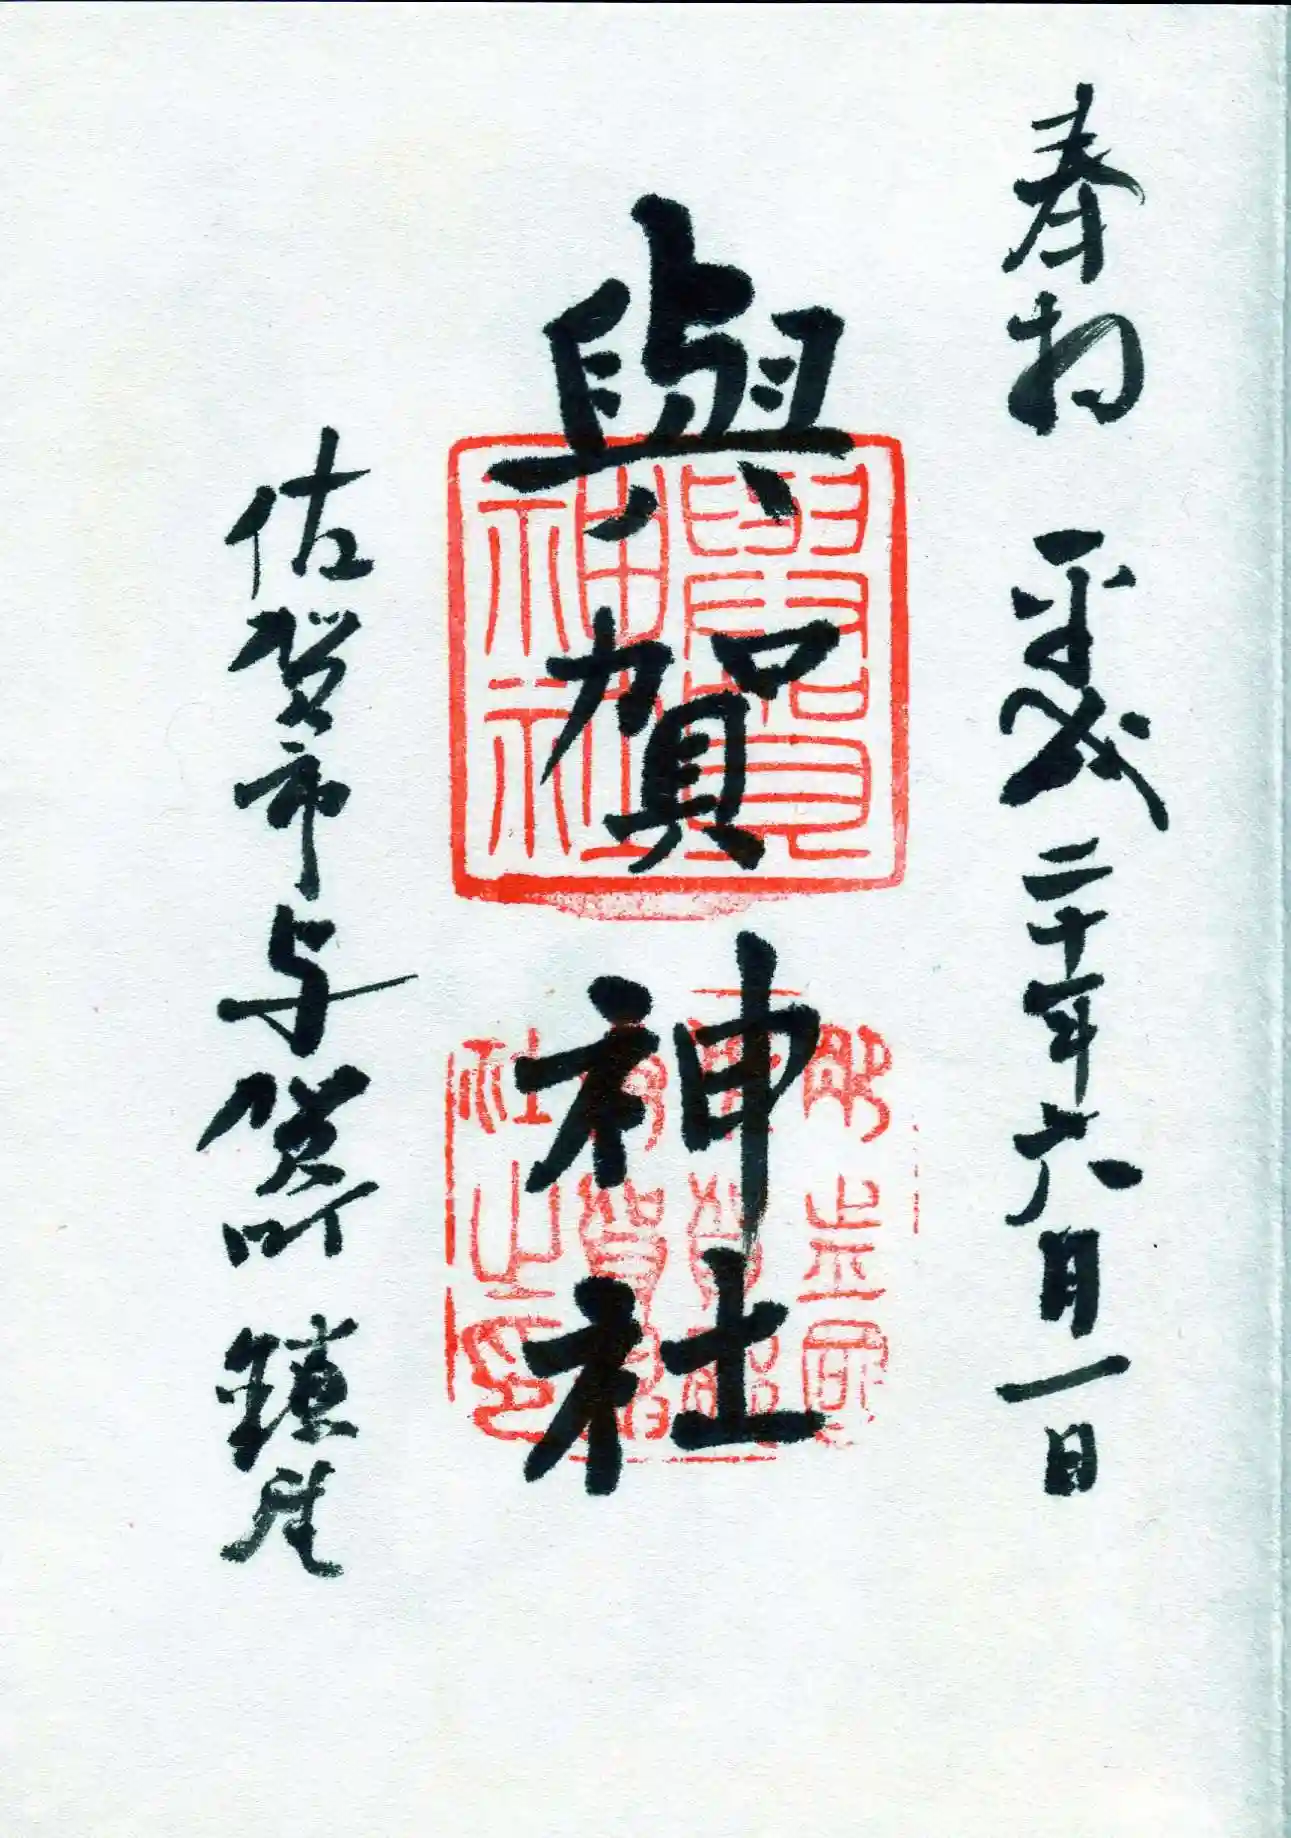 奉拝 平成二十年六月一日
與賀神社
與賀
神社
佐賀市与賀町 鎮座